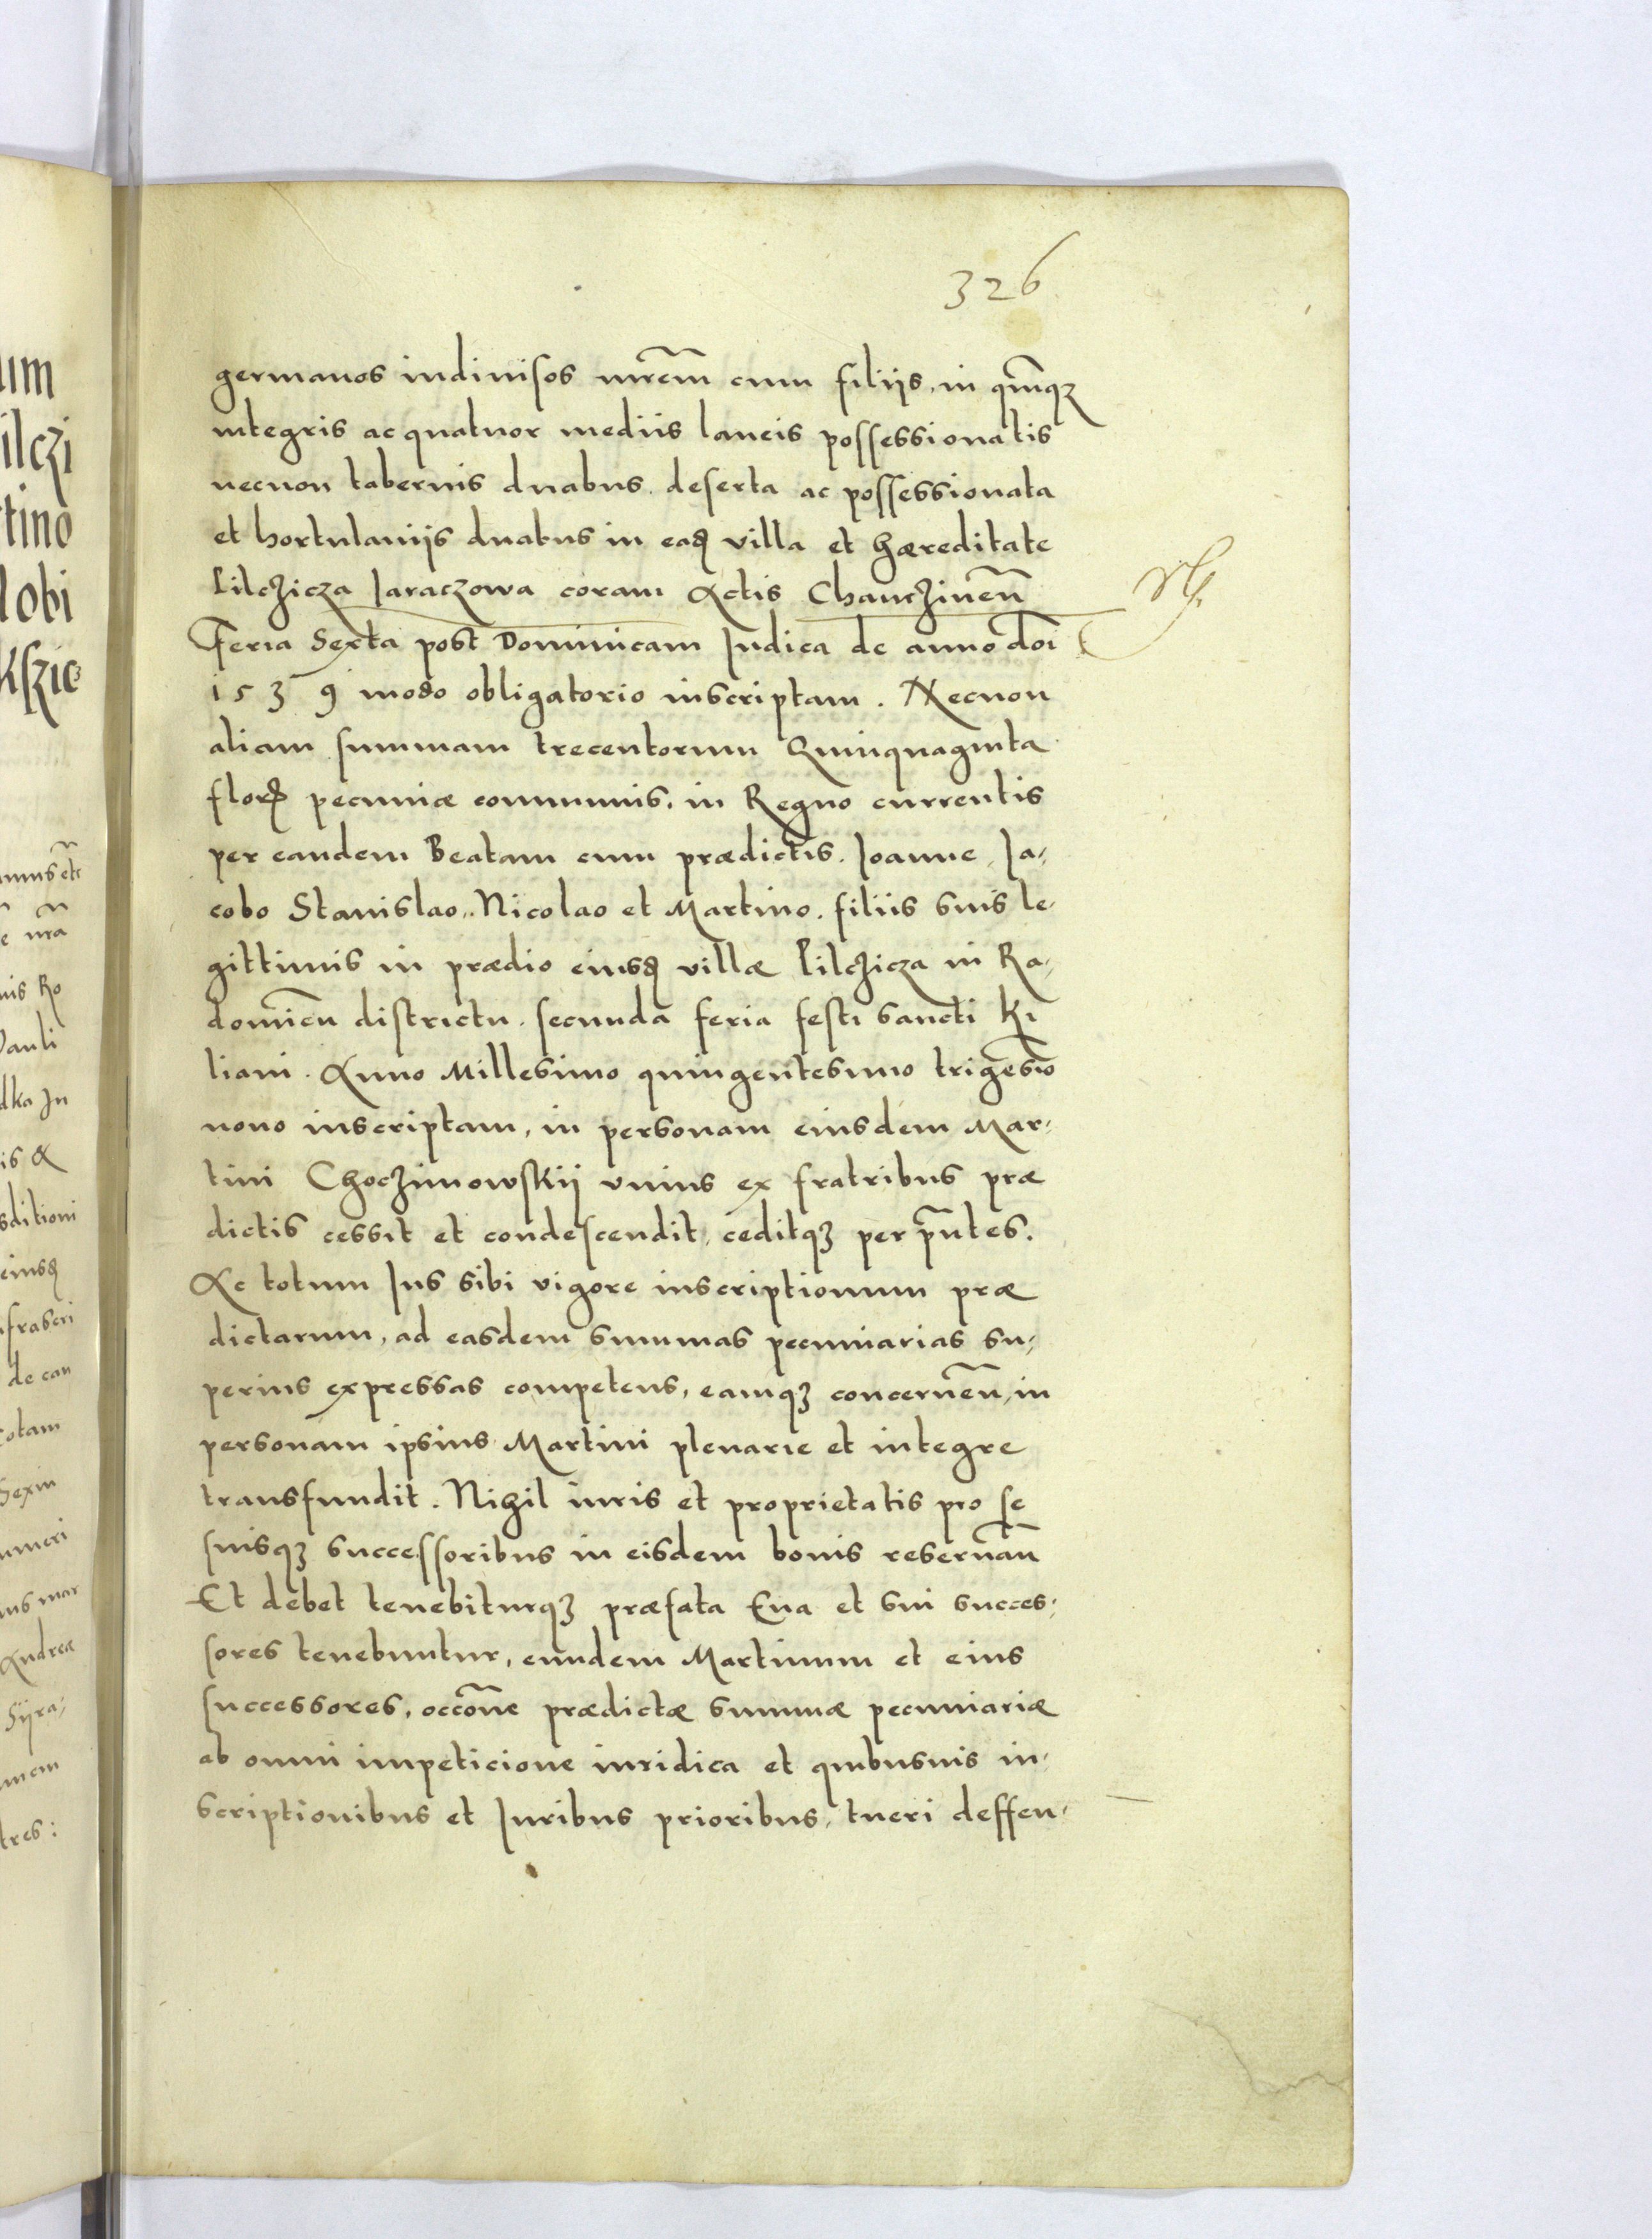 326
germanos indiuisos mr̃em cum filijs, in qm̃qȝ
integris ac quatuor mediis laneis possessionatis
necnon tabernis duabus. deserta ac possessionata
et hortulaniis duabus in eadꝫ villa et hæreditate
Pilczicza Jaraczowa coram Actis Chanczinen̄
Feria Sexta post Dominicam Judica de anno doī
1539 modo obligatorio inscriptam. Necnon
aliam summam trecentorum Quinquaginta
floꝝ pecuniæ communis. in Regno currentis
per eandem Beatam cum prædictis. Joanne, Ja,
cobo Stanislao, Nicolao et Martino. filiis suis le,
gittimis in prædio eiusdꝫ villæ Pilczicza in Ra,
domīen districtu. secunda feria festi Sancti Ki
liani. Anno Millesimo quingentesimo trigesīo
nono inscriptam, in personam eiusdem Mar,
tini Choczimowskij vnius ex fratribus præ
dictis cessit et condescendit, ceditqȝ per pn̄tes.
Ac totum Jus sibi vigore inscriptionum præ
dictarum, ad easdem summas pecuniarias su,
perius expressas competens, eamqȝ concernēn, in
personam ipsius Martini plenarie et integre
transfundit. Nihil iuris et proprietatis pro se
suisqȝ successoribus in eisdem bonis reseruan̄
Et debet tenebiturqȝ præfata Eua et sui succes,
sores tenebuntur, eundem Martinum et eius
successores, occōne prædictæ summæ pecuniariæ
ab omni impeticione iuridica et quibusuis in,
scriptionibus et Juribus prioribus, tueri deffen,